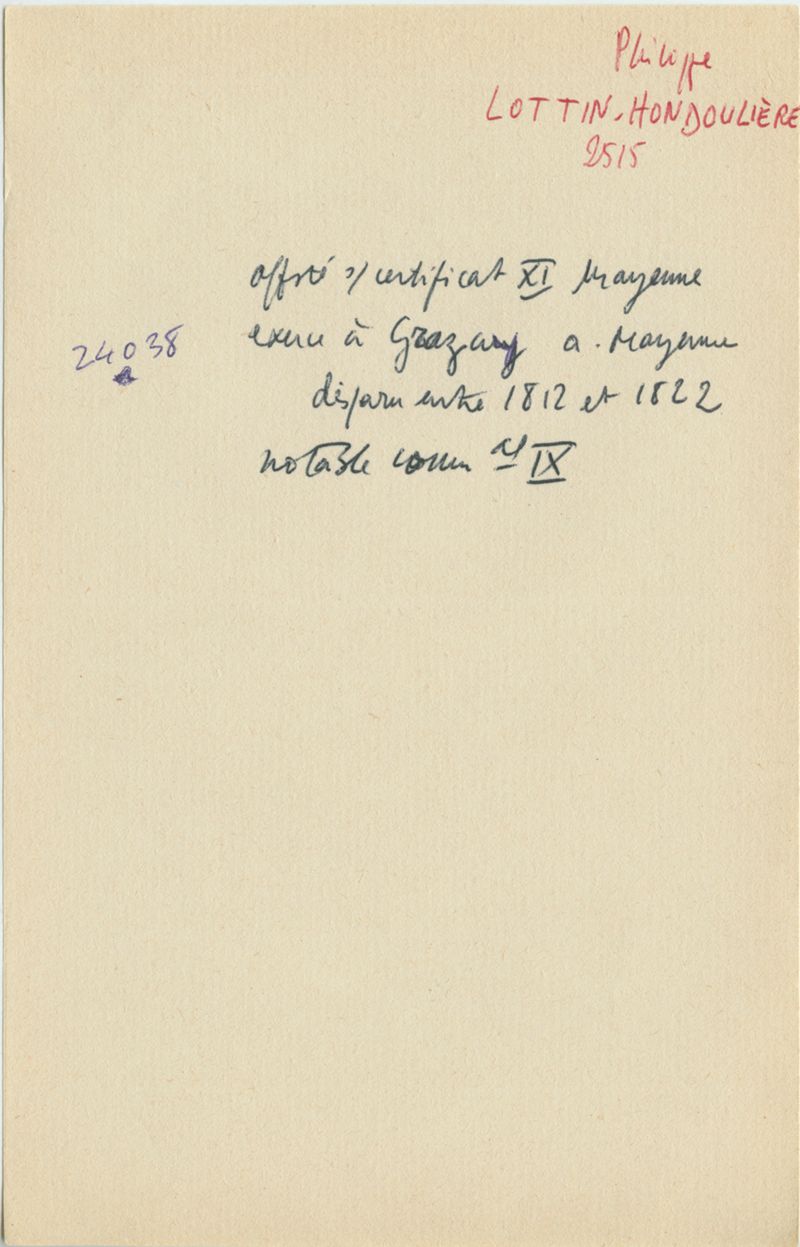 Philippe
LOTTIN-HONDOULIÈRE
2515
s/ certificat XI Mayenne
24038
exerce à Grazay a. Mayenne
disparu entre 1812 et 1822
notable comm al IX